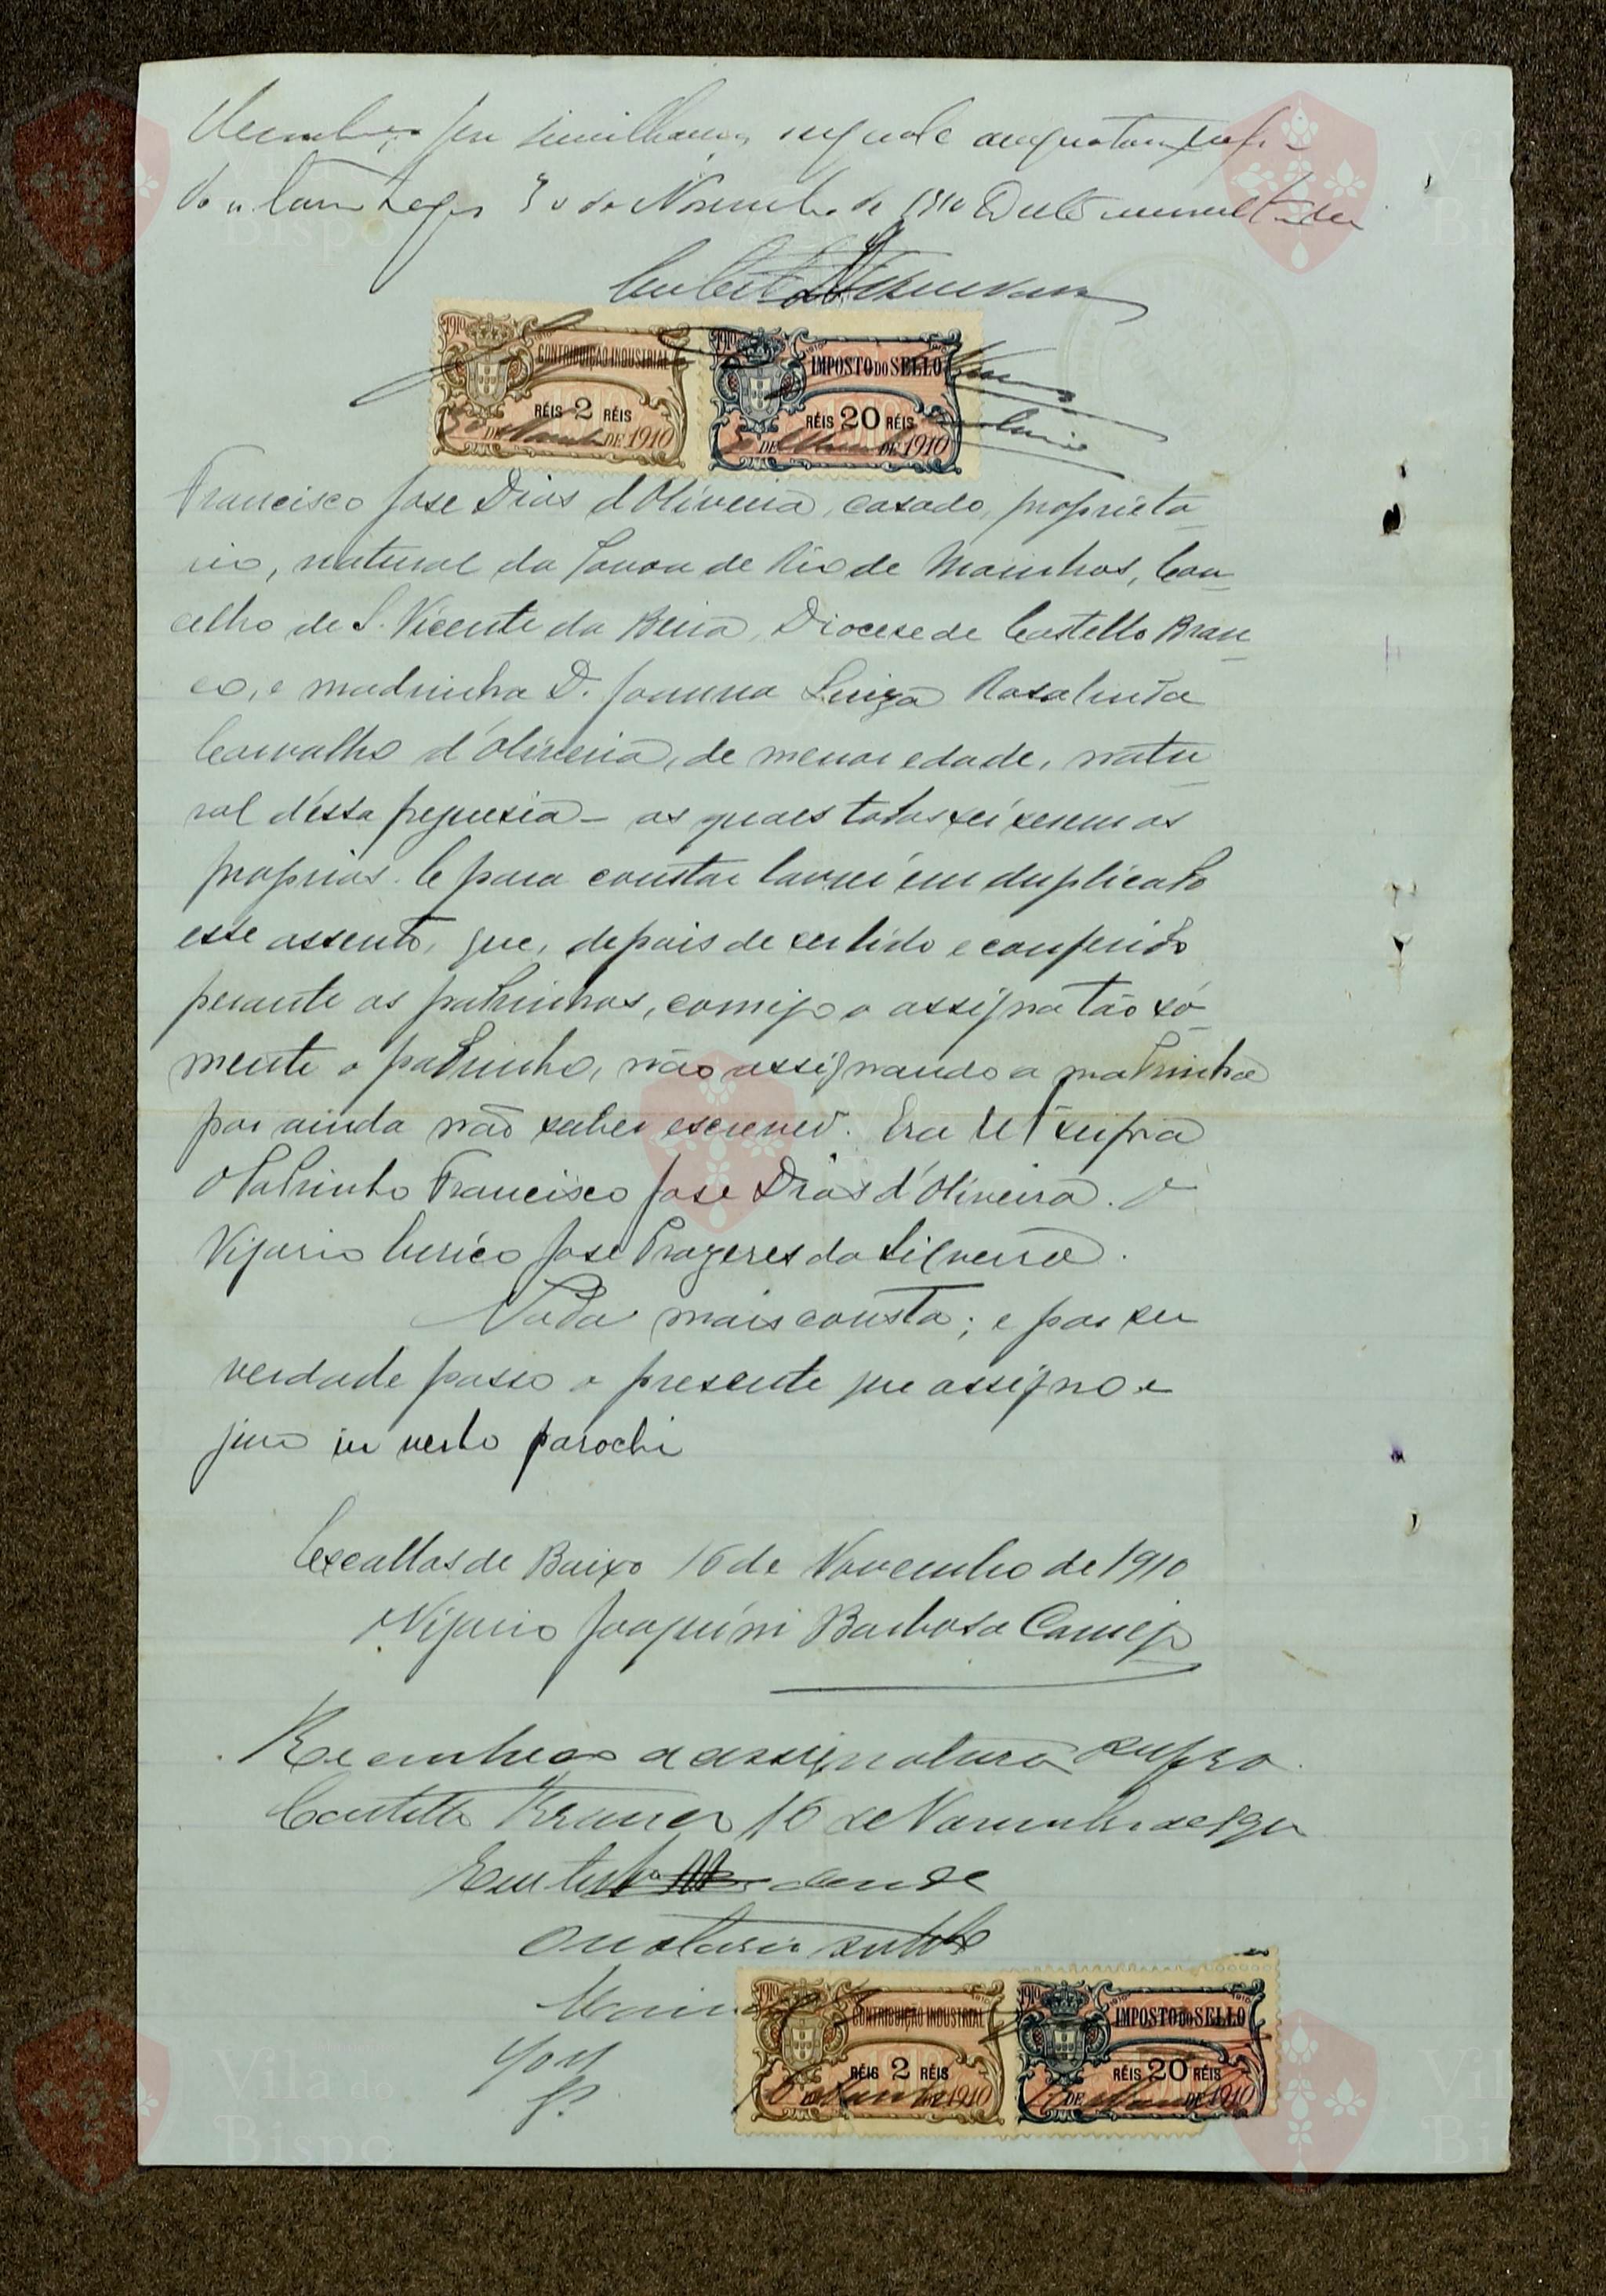 por similhança
30 de Novembro de 1910
1910 CONTRIBUIÇÃO INDUSTRIAL 1910 IMPOSTO DO SELLO
RÉIS 2 RÉIS RÉIS 20 RÉIS
30 DE DE 1910 30 DE DE 1910
Francisco Jose Dias d'Oliveira, casado, proprieta-
rio, natural da Povoa de Rio de Moinhos, Con-
celho de S. Vicente da Beira, Diocese de Castello Bran-
co, e madrinha D. Joanna Luiza Rosalinda
Carvalho d'Oliveira, de menor edade, natu-
ral d'esta freguesia - os quaes todos sei serem os
proprios. E para constar lavrei em duplicato
este assento, que, depois de ser lido e conferido
perante os padrinhos, comigo o assigna tão só-
mente o padrinho, não assignando a madrinha
por ainda não saber escrever. Era ut supra
O Padrinho Francisco Jose Dias d'Oliveira. O
Vigario José Prazeres da Silveira.
Nada mais consta; e por ser
verdade passo o presente que assigno e
juro in verbo parochi
Escallos de Baixo 16 de Novembro de 1910
O Vigario Joaquim Barbosa Camejo
Reconheço a assignatura supra.
Castello Branco 16 de Novembro de 1910
Em testo da verdade
O notario
1910 CONTRIBUIÇÃO INDUSTRIAL 1910 IMPOSTO DO SELLO
RÉIS 2 RÉIS RÉIS 20 RÉIS
16 DE 1910 16 DE DE 1910
Vila
Bispo